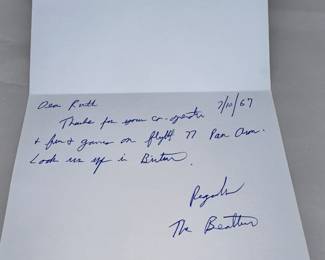 Dear Ruth 7/10/67
Thanks for your co-operation
+ fun + games on flight 77 Pan Am.
Look us up in Britain.
Regards
The Beatles